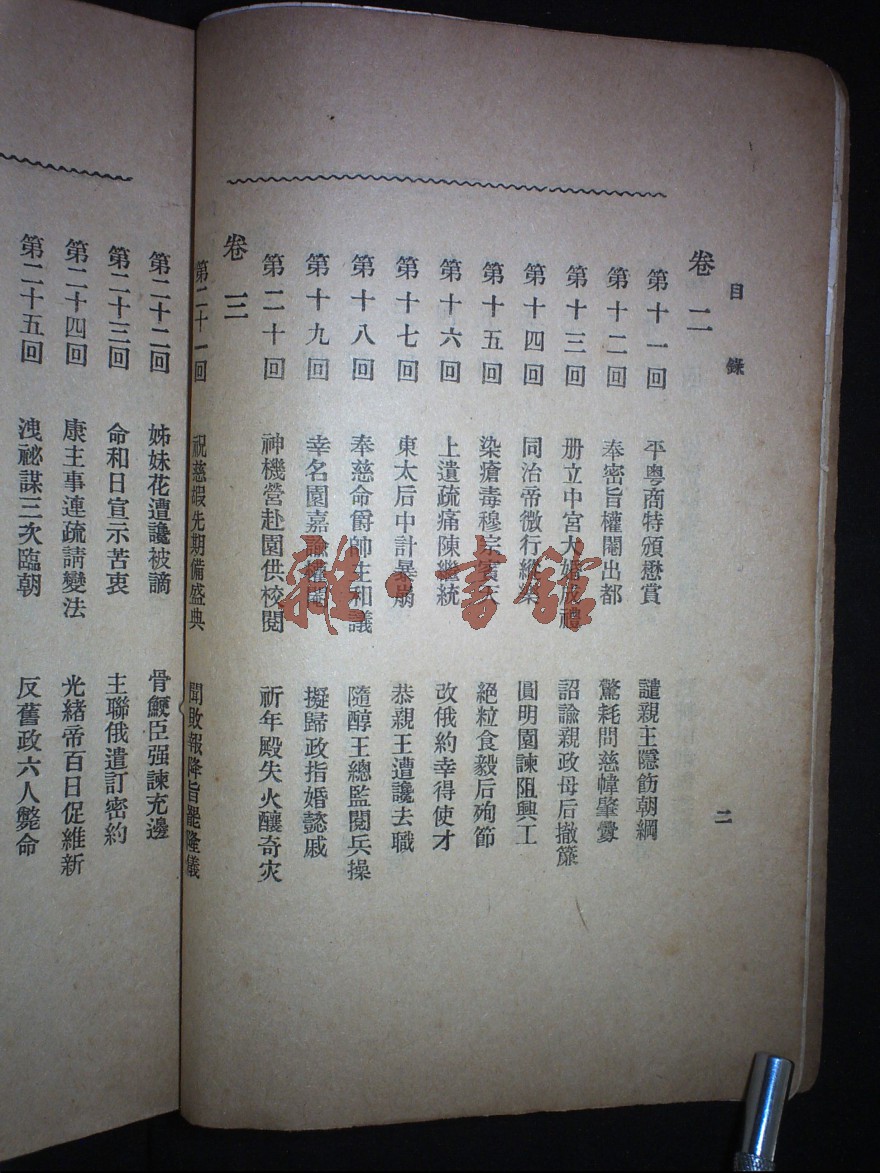 目錄
二
卷二
第十一回 平粵商特頒懋賞 譴親王隱飭朝綱
第十二回 奉密旨權閹出都 驚耗問慈幃肇釁
第十三回 册立中宮大婚成禮 詔諭親政母后撤簾
第十四回 同治帝微行縱樂 圓明園諫阻興工
第十五回 染瘡毒穆宗賓天 絕粒食毅后殉節
第十六回 上遺疏痛陳繼統 改俄約幸得使才
第十七回 東太后中計暴崩 恭親王遭讒去職
第十八回 奉慈命爵帥主和議 隨醇王總監閱兵操
第十九回 幸名園嘉諭權閹 擬歸政指婚懿戚
第二十回 神機營赴園供校閱 祈年殿失火釀奇灾
卷三
第二十一回 祝慈嘏先期備盛典 聞敗報降旨罷隆儀
第二十二回 姊妹花遭讒被謫 骨鯁臣强諫充邊
第二十三回 命和日宣示苦衷 主聯俄遣訂密約
第二十四回 康主事連疏請變法 光緒帝百日促維新
第二十五回 洩祕謀三次臨朝 反舊政六人斃命
雜·書館